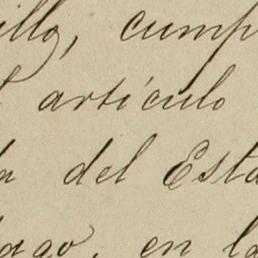 illo, cump
artículo
del Esta
ago, en la